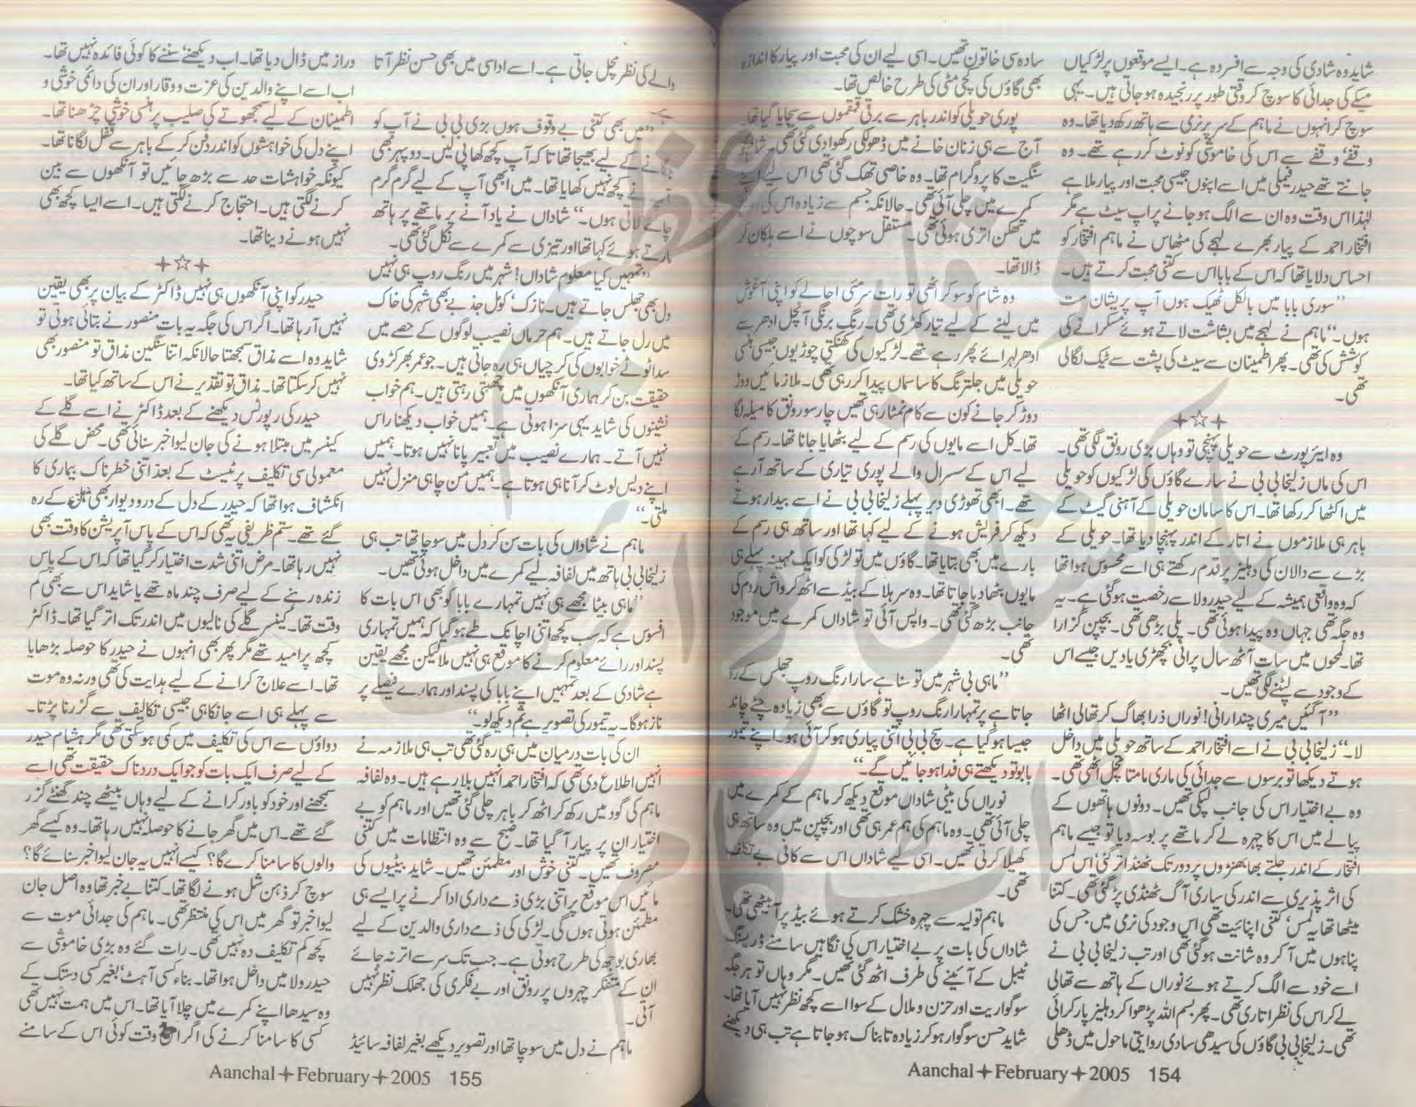 شاید وہ شادی کی وجہ سے افسردہ ہے۔ ایسے موقعوں پر لڑکیاں
میکے کی جدائی کا سوچ کر وقتی طور پر رنجیدہ ہو جاتی ہیں۔ یہی
سوچ کر انہوں نے ماہم کے سر پر نرمی سے ہاتھ رکھ دیا تھا۔ وہ
وقفے وقفے سے اس کی خاموشی کو نوٹ کر رہے تھے۔ وہ
جانتے تھے حیدر فیملی میں اسے اپنوں جیسی محبت اور پیار ملا ہے
لہٰذا اس وقت وہ ان سے الگ ہو جانے پر اپ سیٹ ہے مگر
افتخار احمد کے پیار بھرے لہجے کی مٹھاس نے ماہم افتخار کو
احساس دلایا تھا کہ اس کے بابا اس سے کتنی محبت کرتے ہیں۔
”سوری بابا میں بالکل ٹھیک ہوں آپ پریشان مت
ہوں۔“ ماہم نے لہجے میں بشاشت لاتے ہوئے مسکرانے کی
کوشش کی تھی۔ پھر اطمینان سے سیٹ کی پشت سے ٹیک لگالی
تھی۔
✦☆✦
وہ ایئرپورٹ سے حویلی پہنچی تو وہاں بڑی رونق لگی تھی۔
اس کی ماں زلیخا بی بی نے سارے گاؤں کی لڑکیوں کو حویلی
میں اکٹھا کر رکھا تھا۔ اس کا سامان حویلی کے آہنی گیٹ کے
باہر ہی ملازموں نے اتار کے اندر پہنچا دیا تھا۔ حویلی کے
بڑے سے دالان کی دہلیز پر قدم رکھتے ہی اسے محسوس ہوا تھا
کہ وہ واقعی ہمیشہ کے لیے حیدر ولا سے رخصت ہو گئی ہے۔ یہ
وہ جگہ تھی جہاں وہ پیدا ہوئی تھی۔ پلی بڑھی تھی۔ بچپن گزارا
تھا۔ لمحوں میں سات آٹھ سال پرانی بچھڑی یادیں جیسے اس
کے وجود سے لپٹنے لگی تھیں۔
”آگئیں میری چندا رانی! نوراں ذرا بھاگ کر تھالی اٹھا
لا۔“ زلیخا بی بی نے اسے افتخار احمد کے ساتھ حویلی میں داخل
ہوتے دیکھا تو برسوں سے جدائی کی ماری مامتا مچل اٹھی تھی۔
وہ بے اختیار اس کی جانب لپکی تھیں۔ دونوں ہاتھوں کے
پیالے میں اس کا چہرہ لے کر ماتھے پر بوسہ دیا تو جیسے ماہم
افتخار کے اندر جلتے بھانبھڑوں پر دور تک ٹھنڈ اتر گئی اس لمس
کی اثر پذیری سے اندر کی ساری آگ ٹھنڈی پڑ گئی تھی۔ کتنا
میٹھا تھا یہ لمس، کتنی اپنائیت تھی اس وجود کی نرمی میں جس کی
پناہوں میں آ کر وہ شانت ہو گئی تھی اور تب زلیخا بی بی نے
اسے خود سے الگ کرتے ہوئے نوراں کے ہاتھ سے تھالی
لے کر اس کی نظر اتاری تھی۔ پھر بسم اللہ پڑھوا کر دہلیز پار کرائی
تھی۔ زلیخا بی بی گاؤں کی سیدھی سادی روایتی ماحول میں ڈھلی
سادہ سی خاتون تھیں۔ اسی لیے ان کی محبت اور پیار کا اندازہ
بھی گاؤں کی کچی مٹی کی طرح خالص تھا۔
پوری حویلی کو اندر باہر سے برقی قمقموں سے سجایا گیا تھا۔
آج سے ہی زنان خانے میں ڈھولکی رکھوا دی گئی تھی۔
سنگیت کا پروگرام تھا۔ وہ خاصی تھک گئی تھی اس لیے اپنے
کمرے میں چلی آئی تھی۔ حالانکہ جسم سے زیادہ اس کی
میں تھکن اتری ہوئی تھی۔ مستقل سوچوں نے اسے ہلکان کر
ڈالا تھا۔
وہ شام کو سو کر اٹھی تو رات سرمئی اجالے کو اپنی آغوش
میں لینے کے لیے تیار کھڑی تھی۔ رنگ برنگی آنچل ادھر سے
ادھر لہرائے پھر رہے تھے۔ لڑکیوں کی کھنکتی چوڑیوں جیسی ہنسی
حویلی میں جلترنگ کا سا سماں پیدا کر رہی تھی۔ ملازمائیں دوڑ
دوڑ کر جانے کون سے کام نمٹا رہی تھیں چار سو رونق کا میلہ لگا
تھا۔ کل اسے مایوں کی رسم کے لیے بٹھایا جانا تھا۔ رسم کے
لیے اس کے سسرال والے پوری تیاری کے ساتھ آرہے
تھے۔ ابھی تھوڑی دیر پہلے زلیخا بی بی نے اسے بیدار ہوتے
دیکھ کر فریش ہونے کے لیے کہا تھا اور ساتھ ہی رسم کے
بارے میں بھی بتایا تھا۔ گاؤں میں تو لڑکی کو ایک مہینہ پہلے ہی
مایوں بٹھا دیا جاتا تھا۔ وہ سر ہلا کے بیڈ سے اٹھ کر واش روم کی
جانب بڑھ گئی تھی۔ واپس آئی تو شاداں کمرے میں موجود
تھی۔
”ماہی بی شہر میں تو سنا ہے سارا رنگ روپ جھلس کے رہ
جاتا ہے پر تمہارا رنگ روپ تو گاؤں سے بھی زیادہ چٹے چاند
جیسا ہو گیا ہے۔ سچ بی بی اتنی پیاری ہو کر آئی ہو۔ اپنے تیمور
بابو تو دیکھتے ہی فدا ہو جائیں گے۔“
نوراں کی بیٹی شاداں موقع دیکھ کر ماہم کے کمرے میں
چلی آئی تھی۔ وہ ماہم کی ہم عمر ہی تھی اور بچپن میں وہ ساتھ ہی
کھیلا کرتی تھیں۔ اسی لیے شاداں اس سے کافی بے تکلف
تھی۔
ماہم تولیہ سے چہرہ خشک کرتے ہوئے بیڈ پر آ بیٹھی تھی۔
شاداں کی بات پر بے اختیار اس کی نگاہیں سامنے ڈریسنگ
ٹیبل کے آئینے کی طرف اٹھ گئی تھیں۔ مگر وہاں تو ہر جگہ
سوگواریت اور حزن و ملال کے سوا اسے کچھ نظر نہیں آیا تھا۔
شاید حسن سوگوار ہو کر زیادہ تابناک ہو جاتا ہے تب ہی دیکھنے
Aanchal✦February✦2005 154
والے کی نظر مچل جاتی ہے۔ اسے اداسی میں بھی حسن نظر آتا
ہے۔
”میں بھی کتنی بے وقوف ہوں بڑی بی بی نے آپ کو
کے لیے بھیجا تھا تاکہ آپ کچھ کھا پی لیں۔ دوپہر بھی
کچھ نہیں کھایا تھا۔ میں ابھی آپ کے لیے گرم گرم
چائے لاتی ہوں۔“ شاداں نے یاد آنے پر ماتھے پر ہاتھ
مارتے ہوئے کہا تھا اور تیزی سے کمرے سے نکل گئی تھی۔
”تمہیں کیا معلوم شاداں! شہر میں رنگ روپ ہی نہیں
دل بھی جھلس جاتے ہیں۔ نازک، کومل جذبے بھی شہر کی خاک
میں رل جاتے ہیں۔ ہم حرماں نصیب لوگوں کے حصے میں
سدا ٹوٹے خوابوں کی کرچیاں ہی رہ جاتی ہیں۔ جو عمر بھر کڑوی
حقیقت بن کر ہماری آنکھوں میں چبھتی رہتی ہیں۔ ہم خواب
نشینوں کی شاید یہی سزا ہوتی ہے۔ ہمیں خواب دیکھنا راس
نہیں آتے۔ ہمارے نصیب میں تعبیر پانا نہیں ہوتا۔ ہمیں
اپنے دیس لوٹ کر آنا ہی ہوتا ہے۔ ہمیں من چاہی منزل نہیں
ملتی۔“
ماہم نے شاداں کی بات سن کر دل میں سوچا تھا تب ہی
زلیخا بی بی ہاتھ میں لفافہ لیے کمرے میں داخل ہوئی تھیں۔
”ماہی بیٹا مجھے ہی نہیں تمہارے بابا کو بھی اس بات کا
افسوس ہے کہ سب کچھ اتنی اچانک طے ہو گیا کہ ہمیں تمہاری
پسند اور رائے معلوم کرنے کا موقع ہی نہیں ملا لیکن مجھے یقین
ہے شادی کے بعد تمہیں اپنے بابا کی پسند اور ہمارے فیصلے پر
ناز ہوگا۔ یہ تیمور کی تصویر ہے تم دیکھ لو۔“
ان کی بات درمیان میں ہی رہ گئی تھی تب ہی ملازمہ نے
انہیں اطلاع دی تھی کہ افتخار احمد انہیں بلا رہے ہیں۔ وہ لفافہ
ماہم کی گود میں رکھ کر اٹھ کر باہر چلی گئی تھیں اور ماہم کو بے
اختیار ان پر پیار آ گیا تھا۔ صبح سے وہ انتظامات میں کتنی
مصروف تھیں۔ کتنی خوش اور مطمئن تھیں۔ شاید بیٹیوں کی
مائیں اس موقع پر اتنی بڑی ذمے داری ادا کرنے پر ایسے ہی
مطمئن ہوتی ہوں گی۔ لڑکی کی ذمے داری والدین کے لیے
بھاری بوجھ کی طرح ہوتی ہے۔ جب تک سر سے اتر نہ جائے
ان کے متفکر چہروں پر رونق اور بے فکری کی جھلک نظر نہیں
آتی۔
ماہم نے دل میں سوچا تھا اور تصویر دیکھے بغیر لفافہ سائیڈ
دراز میں ڈال دیا تھا۔ اب دیکھنے، سننے کا کوئی فائدہ نہیں تھا۔
اب اسے اپنے والدین کی عزت و وقار اور ان کی دائمی خوشی و
اطمینان کے لیے سمجھوتے کی صلیب پر ہنسی خوشی چڑھنا تھا۔
اپنے دل کی خواہشوں کو اندر دفن کر کے باہر سے قفل لگانا تھا۔
کیونکہ خواہشات حد سے بڑھ جائیں تو آنکھوں سے بین
کرنے لگتی ہیں۔ احتجاج کرنے لگتی ہیں۔ اسے ایسا کچھ بھی
نہیں ہونے دینا تھا۔
✦☆✦
حیدر کو اپنی آنکھوں ہی نہیں ڈاکٹر کے بیان پر بھی یقین
نہیں آرہا تھا۔ اگر اس کی جگہ یہ بات منصور نے بتائی ہوتی تو
شاید وہ اسے مذاق سمجھتا حالانکہ اتنا سنگین مذاق تو منصور بھی
نہیں کرسکتا تھا۔ مذاق تو تقدیر نے اس کے ساتھ کیا تھا۔
حیدر کی رپورٹس دیکھنے کے بعد ڈاکٹر نے اسے گلے کے
کینسر میں مبتلا ہونے کی جان لیوا خبر سنائی تھی۔ محض گلے کی
معمولی سی تکلیف پر ٹیسٹ کے بعد اتنی خطرناک بیماری کا
انکشاف ہوا تھا کہ حیدر کے دل کے درو دیوار بھی ہل کے رہ
گئے تھے۔ ستم ظریفی یہ تھی کہ اس کے پاس آپریشن کا وقت بھی
نہیں رہا تھا۔ مرض اتنی شدت اختیار کر گیا تھا کہ اس کے پاس
زندہ رہنے کے لیے صرف چند ماہ تھے یا شاید اس سے بھی کم
وقت تھا۔ کینسر گلے کی نالیوں میں اندر تک اتر گیا تھا۔ ڈاکٹر
کچھ پر امید تھے مگر پھر بھی انہوں نے حیدر کا حوصلہ بڑھایا
تھا۔ اسے علاج کرانے کے لیے ہدایت کی تھی ورنہ وہ موت
سے پہلے ہی اسے جانکاہی جیسی تکالیف سے گزرنا پڑتا۔
دواؤں سے اس کی تکلیف میں کمی ہو سکتی تھی مگر ہشام حیدر
کے لیے صرف ایک بات کو جو ایک دردناک حقیقت تھی اسے
سمجھنے اور خود کو باور کرانے کے لیے وہاں بیٹھے چند گھنٹے گزر
گئے تھے۔ اس میں گھر جانے کا حوصلہ نہیں رہا تھا۔ وہ کیسے گھر
والوں کا سامنا کرے گا؟ کیسے انہیں یہ جان لیوا خبر سنائے گا؟
سوچ کر ذہن شل ہونے لگا تھا۔ کتنا بے خبر تھا وہ اصل جان
لیوا خبر تو گھر میں اس کی منتظر تھی۔ ماہم کی جدائی موت سے
کچھ کم تکلیف دہ نہیں تھی۔ رات گئے وہ بڑی خاموشی سے
حیدر ولا میں داخل ہوا تھا۔ بناء کسی آہٹ، بغیر کسی دستک کے
وہ سیدھا اپنے کمرے میں چلا آیا تھا۔ اس میں ہمت نہیں تھی
کسی کا سامنا کرنے کی اگر اس وقت کوئی اس کے سامنے
Aanchal✦February✦2005 155